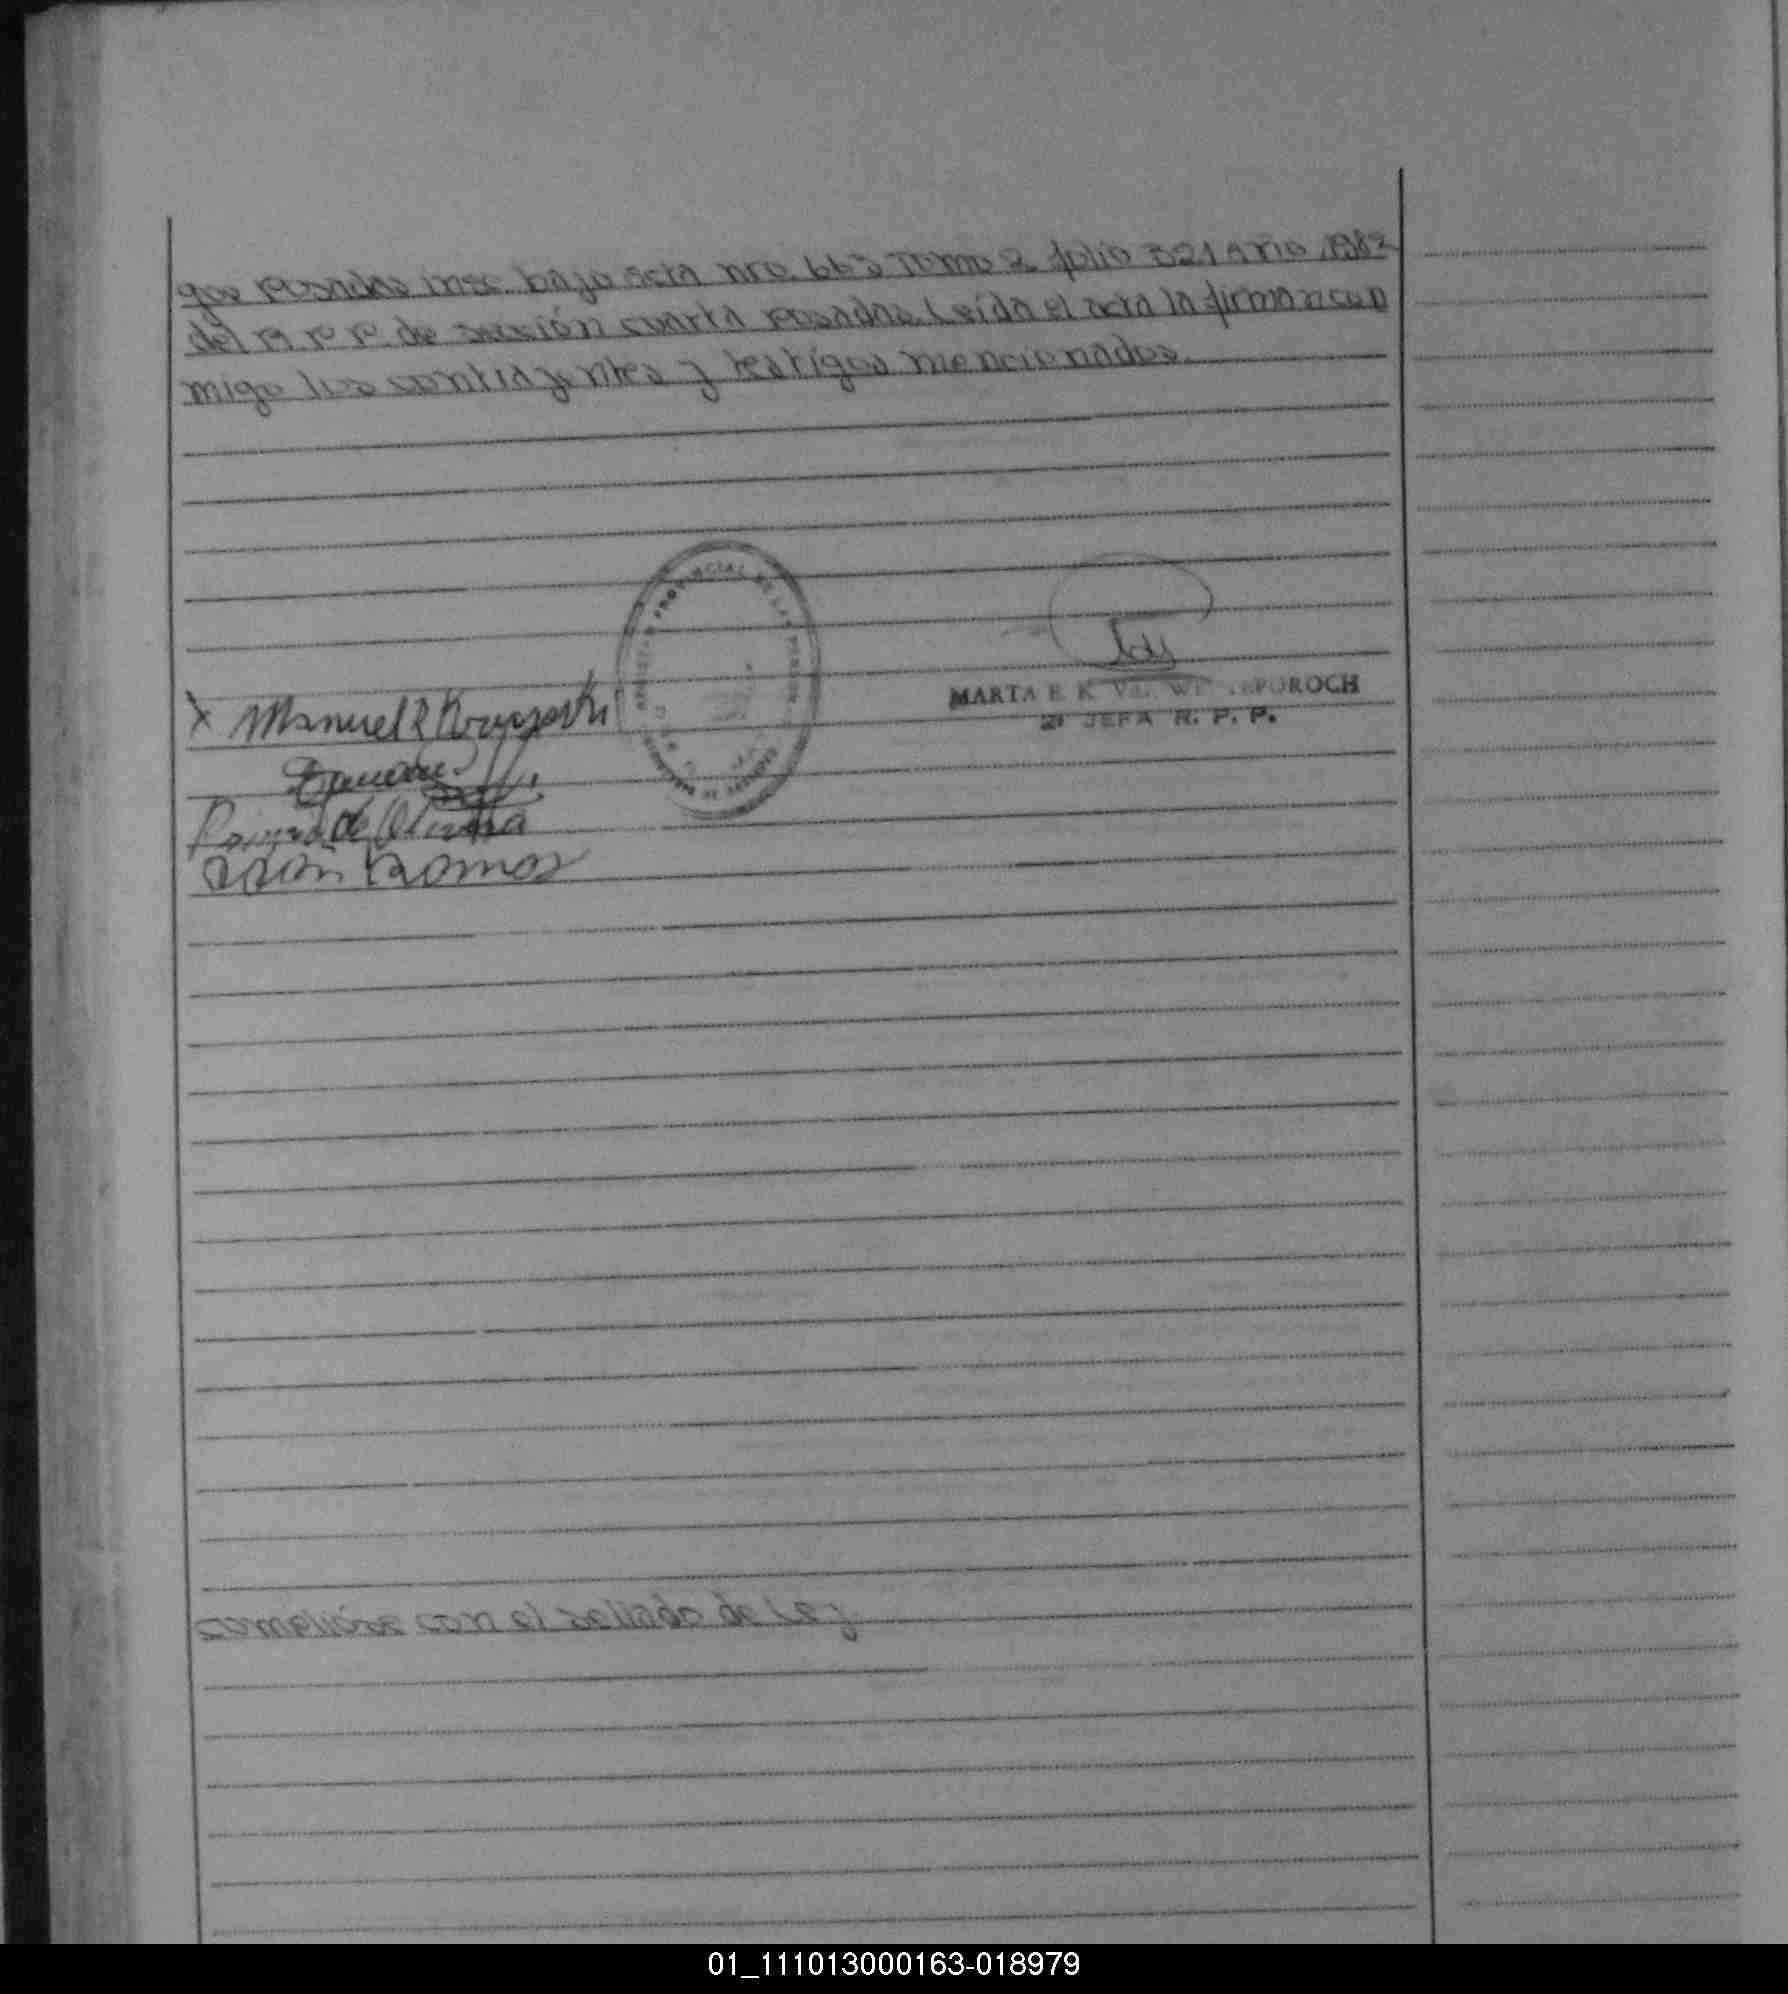 gos Posadas insc. bajo acta nro. 663 Tomo 2 folio 321 Año 1982
del R. P. P. de sección cuarta Posadas. Leída el acta la firman con
migo los contrayentes y testigos mencionados.
PROVINCIAL DE LAS PERSONAS
MARTA E. K. VE.
2ª JEFA R. P. P.
X Manuel R
de Olivera
Ramos
cumplióse con el sellado de Ley.
01_111013000163-018979